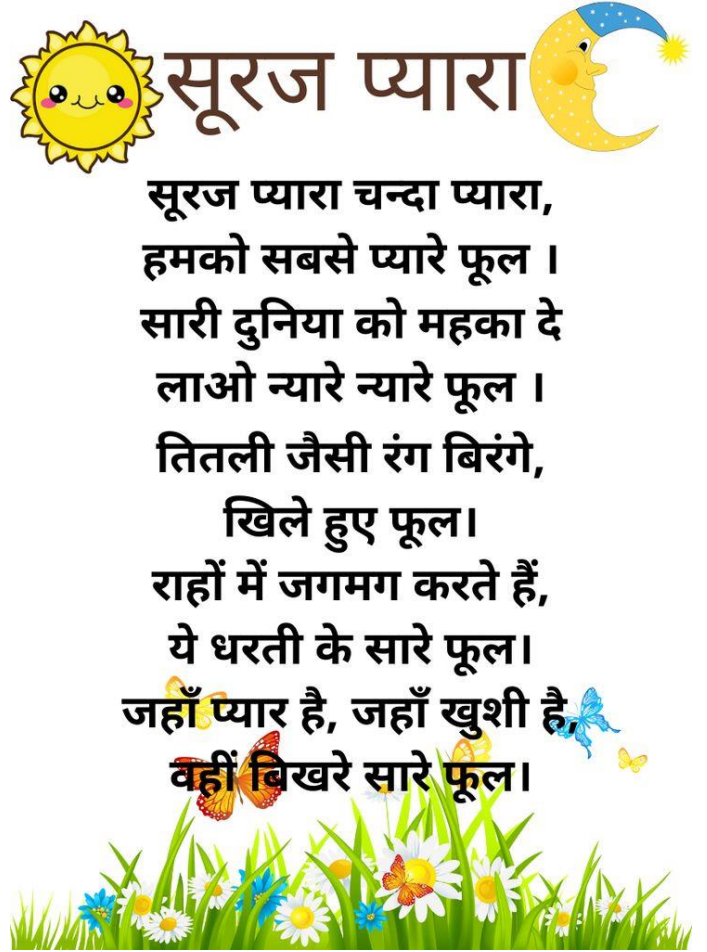 सूरज प्यारा
सूरज प्यारा चन्दा प्यारा,
हमको सबसे प्यारे फूल ।
सारी दुनिया को महका दे
लाओ न्यारे न्यारे फूल ।
तितली जैसी रंग बिरंगे,
खिले हुए फूल।
राहों में जगमग करते हैं,
ये धरती के सारे फूल।
जहाँ प्यार है, जहाँ खुशी है,
वहीं बिखरे सारे फूल।